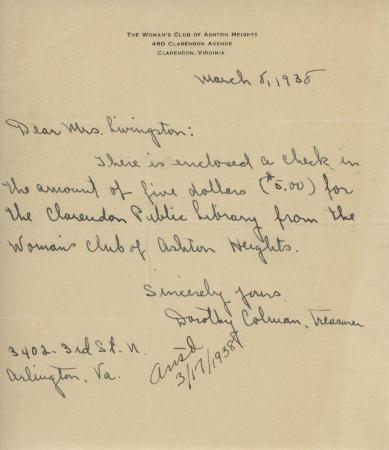 THE WOMAN'S CLUB OF ASHTON HEIGHTS
480 CLARENDON AVENUE
CLARENDON, VIRGINIA
March 8, 1938
Dear Mrs. Livingston:
There is enclosed a check in
the amount of five dollars ($5.00) for
the Clarendon Public Library from the
Woman's Club of Ashton Heights.
Sincerely yours,
Dorothy Colman, Treasurer
3402-3rd St. N.
Arlington, Va.
Ans'd
3/17/1938